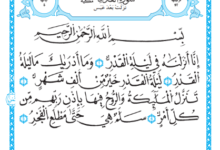 بِسْمِ اللَّهِ الرَّحْمَٰنِ الرَّحِيمِ
إِنَّا أَنزَلْنَاهُ فِي لَيْلَةِ الْقَدْرِ وَمَا أَدْرَاكَ مَا لَيْلَةُ
الْقَدْرِ لَيْلَةُ الْقَدْرِ خَيْرٌ مِّنْ أَلْفِ شَهْرٍ
تَنَزَّلُ الْمَلَائِكَةُ وَالرُّوحُ فِيهَا بِإِذْنِ رَبِّهِم مِّن
كُلِّ أَمْرٍ سَلَامٌ هِيَ حَتَّىٰ مَطْلَعِ الْفَجْرِ